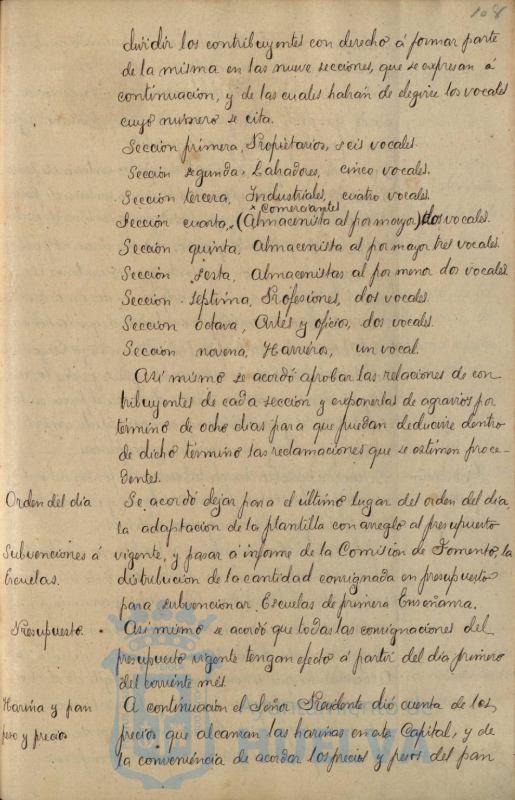 108
dividir los contribuyentes con derecho á formar parte
de la misma en las nueve secciones, que se expresan á
continuación, y de las cuales habrán de elegirse los vocales
cuyo numero se cita.
Sección primera, Propietarios, seis vocales.
Sección segunda, Labradores, cinco vocales.
Sección tercera, Industriales, cuatro vocales.
Comerciantes
Sección cuarta, (Almacenista al por mayor) dos vocales.
Sección quinta, Almacenista al por mayor tres vocales.
Sección sexta, Almacenistas al por menor dos vocales.
Sección septima, Profesiones, dos vocales.
Sección octava, Artes y oficios, dos vocales.
Sección novena, Harrieros, un vocal.
Asi mismo se acordó aprobar las relaciones de con-
tribuyentes de cada sección y exponerlas de agravios por
término de ocho dias para que puedan deducirse dentro
de dicho término las reclamaciones que se estimen proce-
dentes.
Orden del dia
Se acordó dejar para el último lugar del orden del dia,
la adaptación de la plantilla con arreglo al presupuesto
Subvenciones á
Escuelas.
vigente, y pasar á informe de la Comisión de Fomento, la
distribución de la cantidad consignada en presupuesto
para subvencionar Escuelas de primera Enseñanza.
Presupuesto.
Asi mismo se acordó que todas las consignaciones del
presupuesto vigente tengan efecto á partir del día primero
del corriente mes.
Harina y pan
peso y precios
A continuación el Señor Presidente dió cuenta de los
precios que alcanzan las harinas en esta Capital, y de
la conveniencia de acordar los precios y pesos del pan
HUELVA